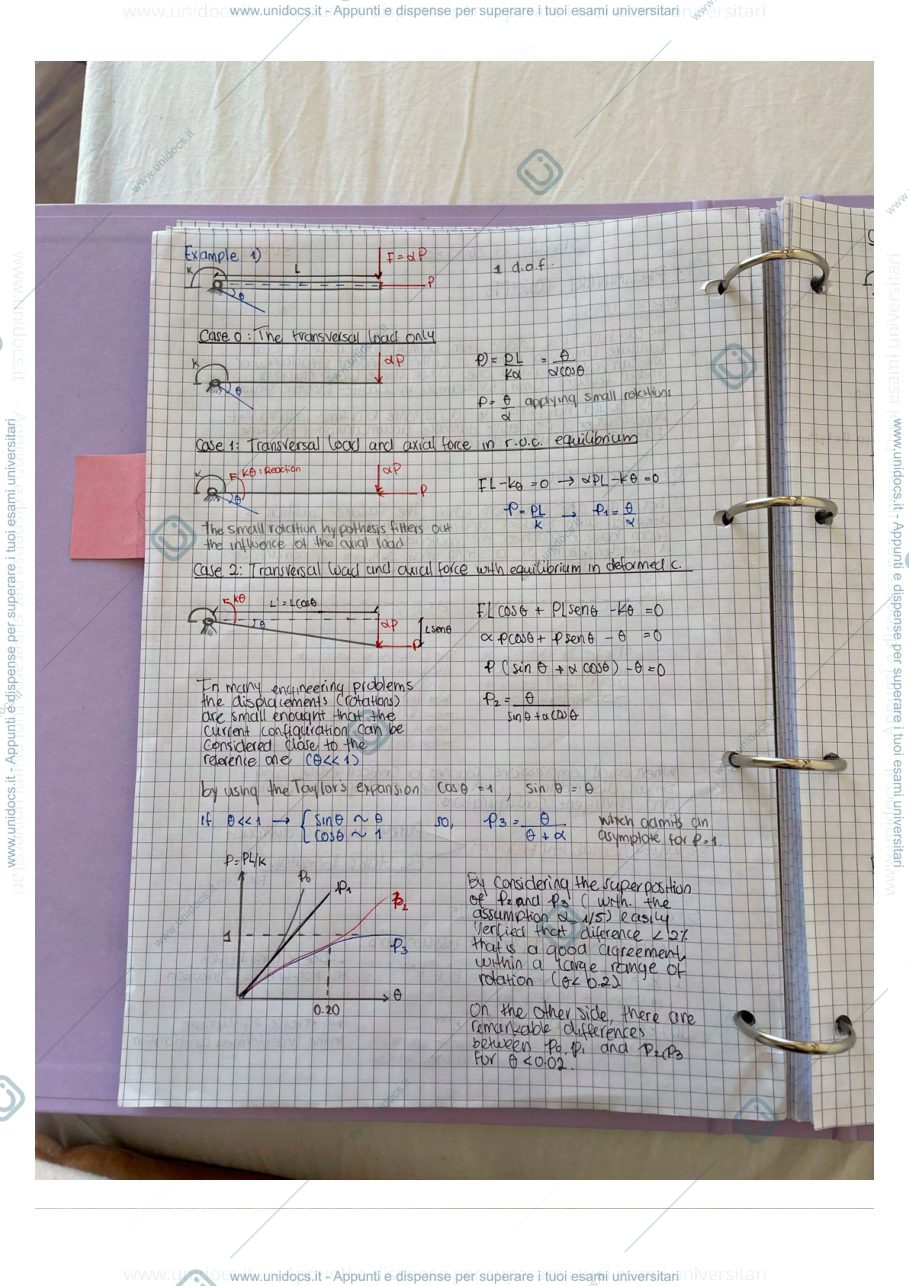 www.unidocs.it - Appunti e dispense per superare i tuoi esami universitari
Example 1)
K
L
F = αP
P
θ
1 d.o.f.
Case 0: The transversal load only
K
αP
θ
P) = PL/Kα = θ/αcosθ
P = θ/α applying small rotations
Case 1: Transversal load and axial force in r.o.c. equilibrium
K
Kθ: Reaction
αP
P
θ
FL - Kθ = 0 → αPL - Kθ = 0
P = PL/K → P1 = θ/α
The small rotation hypothesis filters out
the influence of the axial load
Case 2: Transversal load and axial force with equilibrium in deformed c.
Kθ
L' = Lcosθ
θ
αP
Lsenθ
P
FLcosθ + PLsenθ - Kθ = 0
αpcosθ + psenθ - θ = 0
P (sin θ + α cosθ) - θ = 0
P2 = θ/sinθ + αcosθ
In many engineering problems
the displacements (rotations)
are small enought that the
current configuration can be
considered close to the
reference one (θ<<1)
by using the Taylor's expansion cosθ = 1 , sin θ = θ
If θ<<1 → { sinθ ~ θ
cosθ ~ 1
so, P3 = θ/θ + α which admits an
asymptote for p=1.
P=PL/K
P0
P1
P2
P3
1
0.20
θ
By considering the superposition
of P2 and P3 (with the
assumption α = 1/5) easily
verfied that diference < 2%
that is a good agreement
within a large range of
rotation (θ< 0.2).
On the other side, there are
remarkable differences
between P0, P1 and P2, P3
for θ <0.02.
www.unidocs.it - Appunti e dispense per superare i tuoi esami universitari